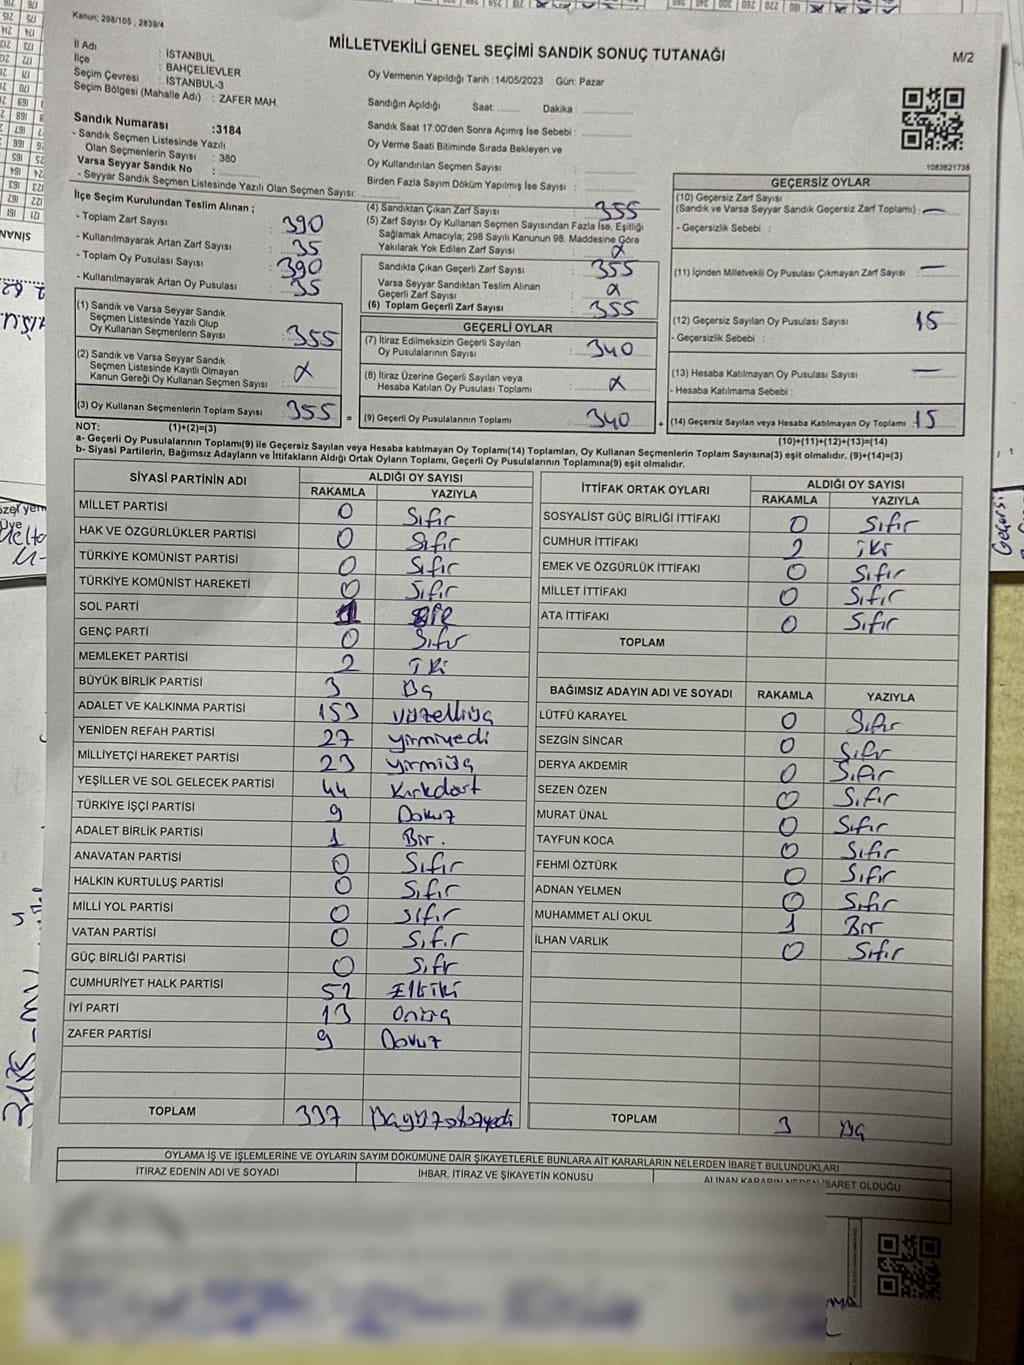 Kanun; 298/105 , 2839/4
MİLLETVEKİLİ GENEL SEÇİMİ SANDIK SONUÇ TUTANAĞI
M/2
İl Adı : İSTANBUL
İlçe : BAHÇELİEVLER
Seçim Çevresi : İSTANBUL-3
Seçim Bölgesi (Mahalle Adı) : ZAFER MAH.
Sandık Numarası :3184
- Sandık Seçmen Listesinde Yazılı
Olan Seçmenlerin Sayısı : 380
Varsa Seyyar Sandık No :
- Seyyar Sandık Seçmen Listesinde Yazılı Olan Seçmen Sayısı:
Oy Vermenin Yapıldığı Tarih :14/05/2023 Gün: Pazar
Sandığın Açıldığı Saat: Dakika :
Sandık Saat 17:00'den Sonra Açımış İse Sebebi :
Oy Verme Saati Bitiminde Sırada Bekleyen ve
Oy Kullandırılan Seçmen Sayısı :
Birden Fazla Sayım Döküm Yapılmış İse Sayısı :
1083821735
İlçe Seçim Kurulundan Teslim Alınan ;
- Toplam Zarf Sayısı : 390
- Kullanılmayarak Artan Zarf Sayısı : 35
- Toplam Oy Pusulası Sayısı : 390
- Kullanılmayarak Artan Oy Pusulası : 35
(1) Sandık ve Varsa Seyyar Sandık
Seçmen Listesinde Yazılı Olup
Oy Kullanan Seçmenlerin Sayısı : 355
(2) Sandık ve Varsa Seyyar Sandık
Seçmen Listesinde Kayıtlı Olmayan
Kanun Gereği Oy Kullanan Seçmen Sayısı :
(3) Oy Kullanan Seçmenlerin Toplam Sayısı : 355 =
(4) Sandıktan Çıkan Zarf Sayısı : 355
(5) Zarf Sayısı Oy Kullanan Seçmen Sayısından Fazla İse, Eşitliği
Sağlamak Amacıyla; 298 Sayılı Kanunun 98. Maddesine Göre
Yakılarak Yok Edilen Zarf Sayısı :
Sandıkta Çıkan Geçerli Zarf Sayısı : 355
Varsa Seyyar Sandıktan Teslim Alınan
Geçerli Zarf Sayısı :
(6) Toplam Geçerli Zarf Sayısı : 355
GEÇERLİ OYLAR
(7) İtiraz Edilmeksizin Geçerli Sayılan
Oy Pusulalarının Sayısı : 340
(8) İtiraz Üzerine Geçerli Sayılan veya
Hesaba Katılan Oy Pusulası Toplamı :
(9) Geçerli Oy Pusulalarının Toplamı : 340 +
GEÇERSİZ OYLAR
(10) Geçersiz Zarf Sayısı
(Sandık ve Varsa Seyyar Sandık Geçersiz Zarf Toplamı) : —
- Geçersizlik Sebebi :
(11) İçinden Milletvekili Oy Pusulası Çıkmayan Zarf Sayısı : —
(12) Geçersiz Sayılan Oy Pusulası Sayısı : 15
- Geçersizlik Sebebi :
(13) Hesaba Katılmayan Oy Pusulası Sayısı : —
- Hesaba Katılmama Sebebi :
(14) Geçersiz Sayılan veya Hesaba Katılmayan Oy Toplamı : 15
NOT: (1)+(2)=(3)
(10)+(11)+(12)+(13)=(14)
a- Geçerli Oy Pusulalarının Toplamı(9) ile Geçersiz Sayılan veya Hesaba katılmayan Oy Toplamı(14) Toplamları, Oy Kullanan Seçmenlerin Toplam Sayısına(3) eşit olmalıdır. (9)+(14)=(3)
b- Siyasi Partilerin, Bağımsız Adayların ve İttifakların Aldığı Ortak Oyların Toplamı, Geçerli Oy Pusulalarının Toplamına(9) eşit olmalıdır.
SİYASİ PARTİNİN ADI ALDIĞI OY SAYISI
RAKAMLA YAZIYLA
MİLLET PARTİSİ 0 Sıfır
HAK VE ÖZGÜRLÜKLER PARTİSİ 0 Sıfır
TÜRKİYE KOMÜNİST PARTİSİ 0 Sıfır
TÜRKİYE KOMÜNİST HAREKETİ 0 Sıfır
SOL PARTİ 1 BİR
GENÇ PARTİ 0 Sıfır
MEMLEKET PARTİSİ 2 iki
BÜYÜK BİRLİK PARTİSİ 3 Üç
ADALET VE KALKINMA PARTİSİ 153 yüzelliüç
YENİDEN REFAH PARTİSİ 27 yirmiyedi
MİLLİYETÇİ HAREKET PARTİSİ 23 yirmiüç
YEŞİLLER VE SOL GELECEK PARTİSİ 44 Kırkdört
TÜRKİYE İŞÇİ PARTİSİ 9 Dokuz
ADALET BİRLİK PARTİSİ 1 Bir.
ANAVATAN PARTİSİ 0 Sıfır
HALKIN KURTULUŞ PARTİSİ 0 Sıfır
MİLLİ YOL PARTİSİ 0 sıfır
VATAN PARTİSİ 0 Sıfır
GÜÇ BİRLİĞİ PARTİSİ 0 Sıfır
CUMHURİYET HALK PARTİSİ 52 Elliiki
İYİ PARTİ 13 Onüç
ZAFER PARTİSİ 9 Dokuz
TOPLAM 337 Üçyüzotuzyedi
İTTİFAK ORTAK OYLARI ALDIĞI OY SAYISI
RAKAMLA YAZIYLA
SOSYALİST GÜÇ BİRLİĞİ İTTİFAKI 0 Sıfır
CUMHUR İTTİFAKI 2 iki
EMEK VE ÖZGÜRLÜK İTTİFAKI 0 Sıfır
MİLLET İTTİFAKI 0 Sıfır
ATA İTTİFAKI 0 Sıfır
TOPLAM
BAĞIMSIZ ADAYIN ADI VE SOYADI RAKAMLA YAZIYLA
LÜTFÜ KARAYEL 0 Sıfır
SEZGİN SİNCAR 0 Sıfır
DERYA AKDEMİR 0 Sıfır
SEZEN ÖZEN 0 Sıfır
MURAT ÜNAL 0 Sıfır
TAYFUN KOCA 0 Sıfır
FEHMİ ÖZTÜRK 0 Sıfır
ADNAN YELMEN 0 Sıfır
MUHAMMET ALİ OKUL 1 Bir
İLHAN VARLIK 0 Sıfır
TOPLAM 3 Üç
OYLAMA İŞ VE İŞLEMLERİNE VE OYLARIN SAYIM DÖKÜMÜNE DAİR ŞİKAYETLERLE BUNLARA AİT KARARLARIN NELERDEN İBARET BULUNDUKLARI
İTİRAZ EDENİN ADI VE SOYADI İHBAR, İTİRAZ VE ŞİKAYETİN KONUSU ALINAN KARARIN NEDEN İBARET OLDUĞU